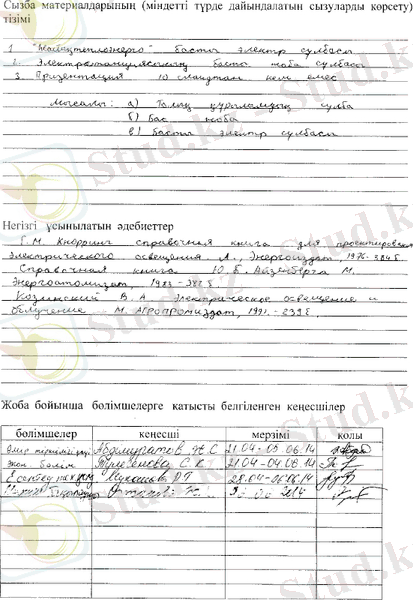 Сызба материалдарының (міндетті түрде дайындалатын сызуларды көрсету)
тізімі
1 басты электр сұлбасы
2. Электростанциясының басты жоба сұлбасы
3. Презентация 10 слайдтан кем емес
Мысалы: а) Толық құрылымдық сұлба
б) Бас жоба
в) Басты электр сұлбасы
Негізгі ұсынылатын әдебиеттер
Г.М. Кнорринг справочная книга для проектирования
электрического освещения Л., Энергоиздат, 1976-384 б.
Справочная книга Ю.Б. Айзенберга М.
Энергоатомиздат, 1983-
Козинский В.А. Электрическое освещение и
облучение - М. Агропромиздат, 1991. -239 б.
Жоба бойынша бөлімшелерге қатысты белгіленген кеңесшілер
бөлімшелер кеңесші мерзімі қолы
Абдимуратов Ж.С 21.04-05.06.14
Экон бөлім Тулегенова С.К. 21.04-04.06.14
Есептеу тех Мукашева РГ 28.04-06.06.14
2014
Stud.kz - Stud.kz